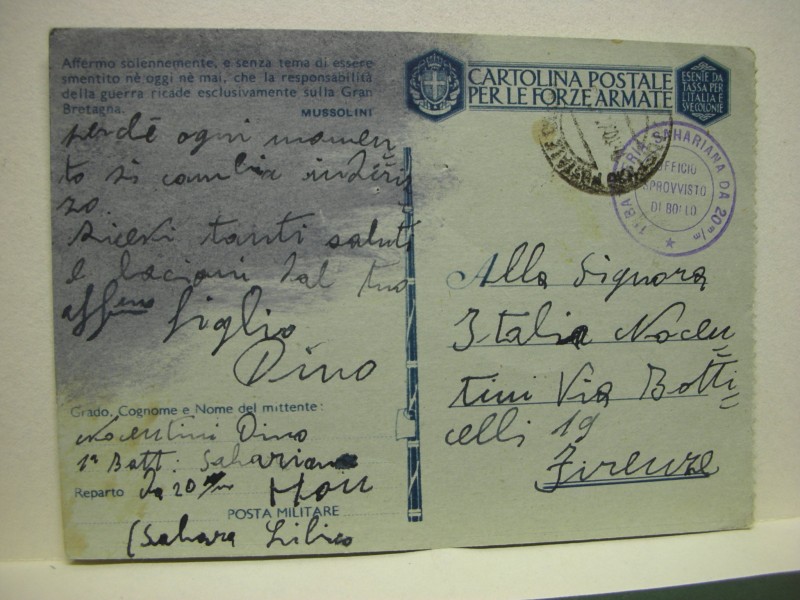 Affermo solennemente, e senza tema di essere
smentito nè oggi nè mai, che la responsabilità
della guerra ricade esclusivamente sulla Gran
Bretagna.
MUSSOLINI
CARTOLINA POSTALE
PER LE FORZE ARMATE
ESENTE DA
TASSA PER
L'ITALIA E
SVE COLONIE
perchè ogni momen
to si cambia indiriz
zo.
Ricevi tanti saluti
e bacioni dal tuo
affmo figlio
Dino
SAHARIANA DA 20 m/m
UFFICIO
SPROVVISTO
DI BOLLO
Alla Signora
Italia Nocen
tini Via Botti
celli 19
Firenze
Grado, Cognome e Nome del mittente:
Nocentini Dino
1ª Batt. Sahariana
Reparto da 20 m/m Hon
POSTA MILITARE
(Sahara Libico